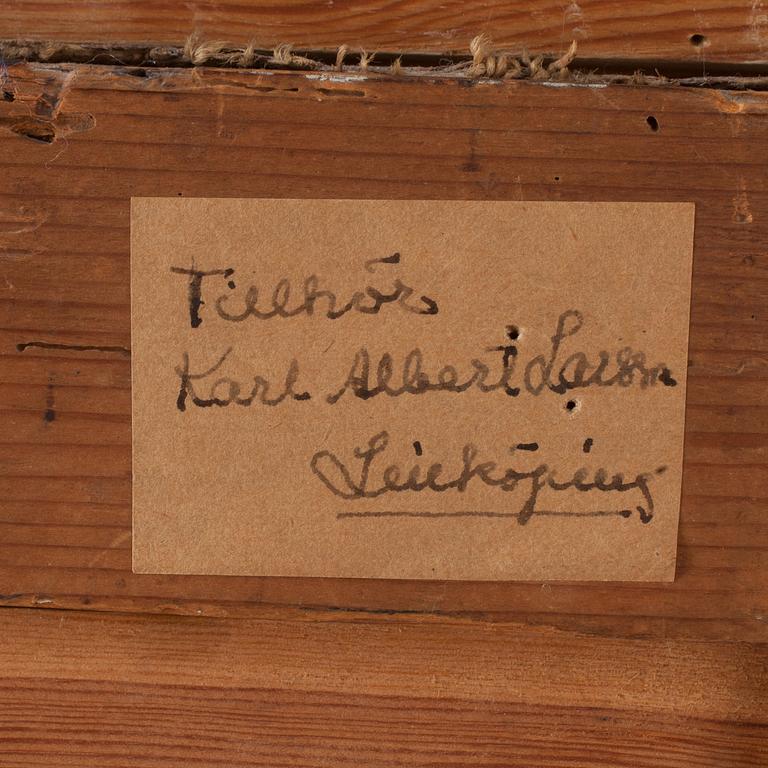 Tillhör
Karl Albert Larson
Linköping